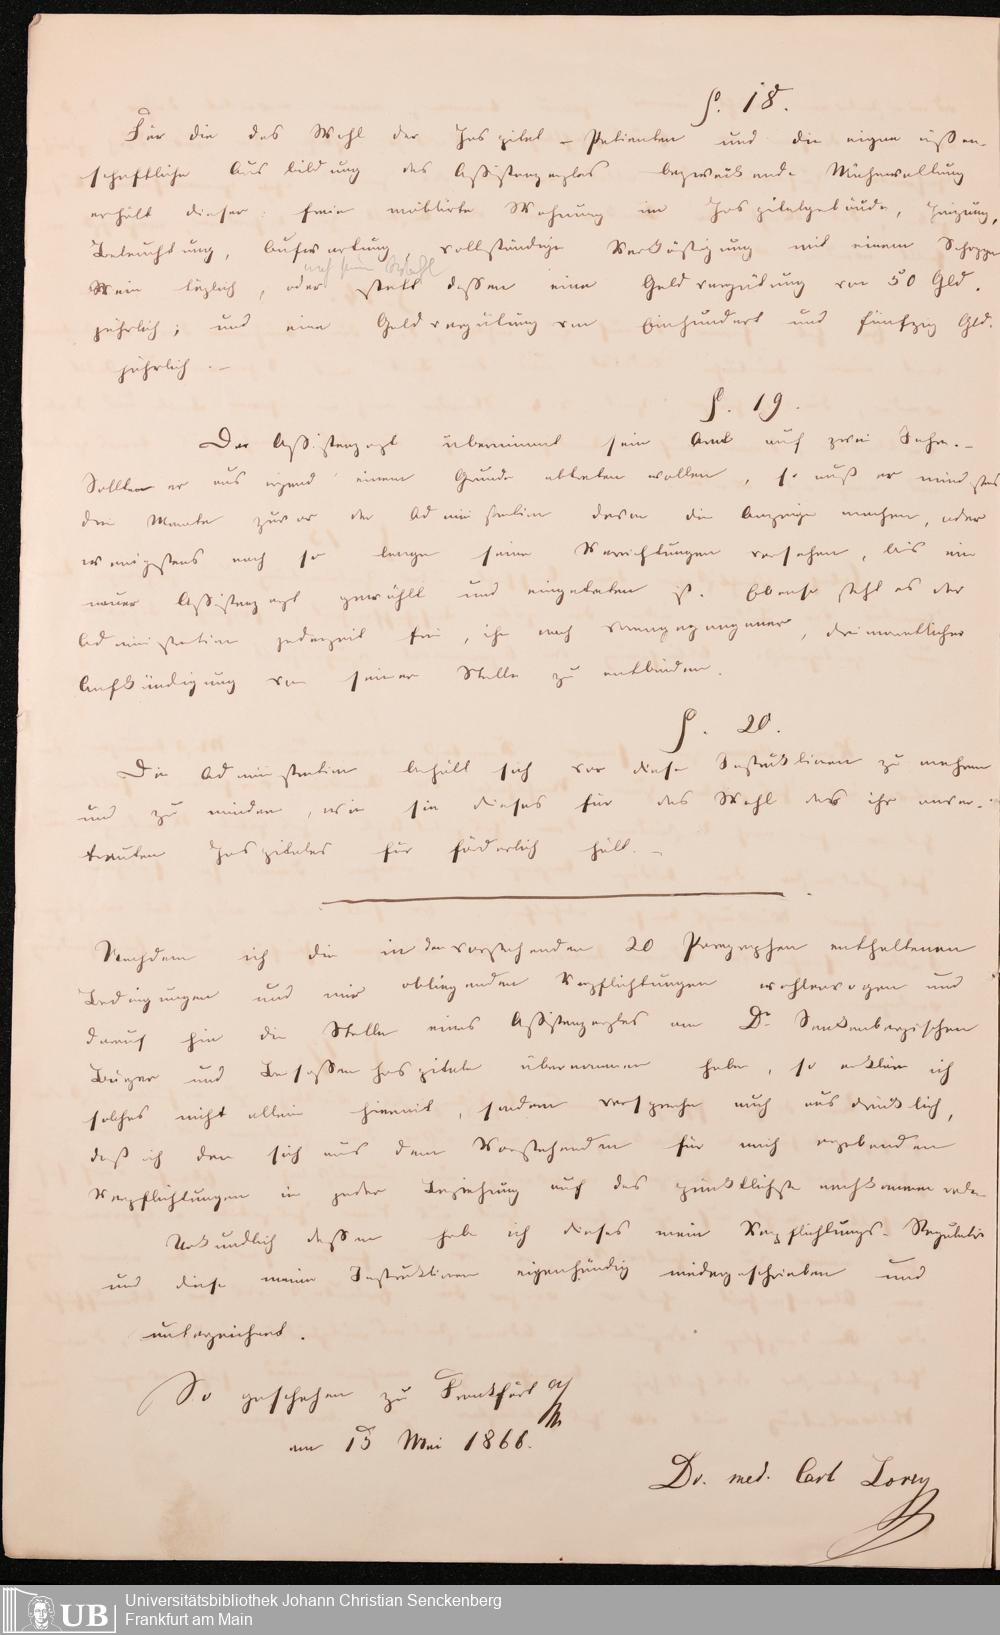 §. 18.
Für die das Wohl der Hospital-Patienten und die eigne wissen-
schaftliche Ausbildung des Assistenzarztes bezweckende Mühewaltung
erhält dieser: freie möblirte Wohnung im Hospitalgebäude, Heizung,
Beleuchtung, Aufwartung, vollständige Verköstigung mit einem Schoppen
nach seiner Wahl
Wein täglich, oder statt dessen eine Geldvergütung von 50 Gld.
jährlich; und eine Geldvergütung von Einhundert und fünfzig Gld.
jährlich.—
§. 19.
Der Assistenzarzt übernimmt sein Amt auf zwei Jahre.—
Sollte er aus irgend einem Grunde abtreten wollen, so muß er mindestens
drei Monate zuvor der Administration davon die Anzeige machen, oder
wenigstens noch so lange seine Verrichtungen versehen, bis ein
neuer Assistenzarzt gewählt und eingetreten ist. Ebenso steht es der
Administration jederzeit frei, ihn nach vorausgegangener, dreimonatlicher
Aufkündigung von seiner Stelle zu entbinden.
§. 20.
Die Administration behält sich vor diese Instruktionen zu mehren
und zu mindern, wie sie dieses für das Wohl des ihr anver-
trauten Hospitales für förderlich hält.—
Nachdem ich die in den vorstehenden 20 Paragraphen enthaltenen
Bedingungen und mir obliegenden Verpflichtungen wohlerwogen und
darauf hin die Stelle eines Assistenzarztes am Dr. Senkenbergischen
Bürger und Beisassen hospitale übernommen habe, so erkläre ich
solches nicht allein hiermit, sondern verspreche auch ausdrücklich,
daß ich den sich aus dem Vorstehenden für mich ergebenden
Verpflichtungen in jeder Beziehung auf das pünktlichste nachkommen werde.
Urkundlich dessen habe ich dieses mein Verpflichtungs-Regulativ
und diese meine Instruktionen eigenhändig niedergeschrieben und
unterzeichnet.
So geschehen zu Frankfurt a/M
am 15 Mai 1866.
Dr. med. Carl Lorey
UB
Universitätsbibliothek Johann Christian Senckenberg
Frankfurt am Main